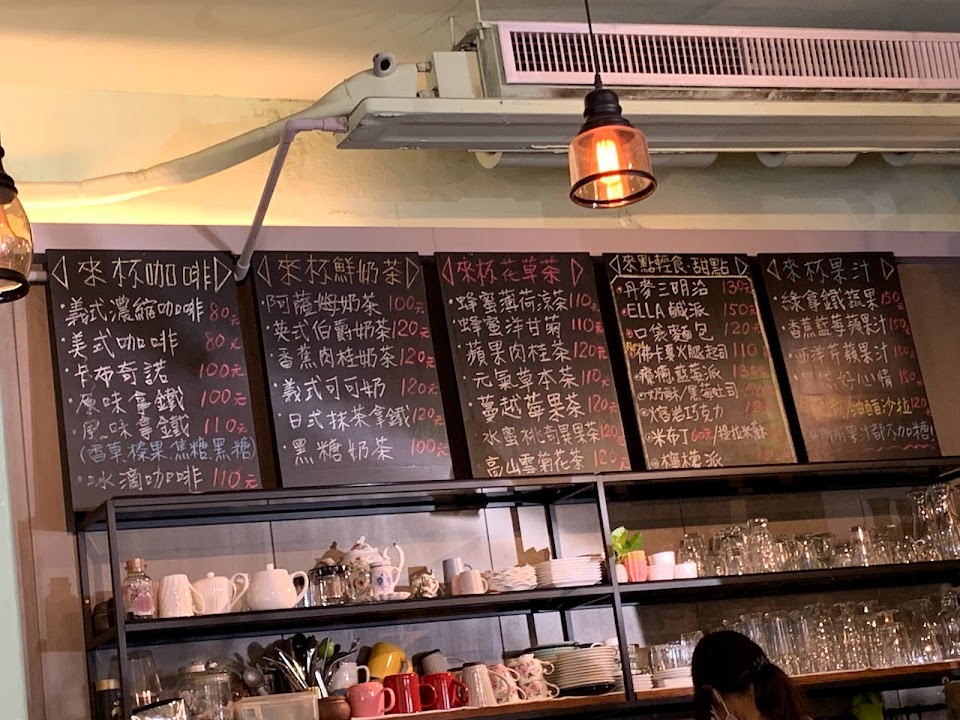 來杯咖啡
義式濃縮咖啡 80元
美式咖啡 80元
卡布奇諾 100元
原味拿鐵 100元
風味拿鐵 110元
(香草.榛果.焦糖.黑糖)
冰滴咖啡 110元
來杯鮮奶茶
阿薩姆奶茶 100元
英式伯爵奶茶 120元
香蕉肉桂奶茶 120元
義式可可奶 120元
日式抹茶拿鐵 120元
黑糖奶茶 100元
來杯花草茶
蜂蜜薄荷涼茶 110元
蜂蜜洋甘菊 110元
蘋果肉桂茶 110元
元氣草本茶 110元
蔓越莓果茶 120元
水蜜桃奇異果茶 120元
高山雪菊花茶 120元
來點輕食.甜點
丹麥三明治 130元
ELLA鹹派 150元
口袋麵包 120元
佛卡夏火腿起司 110
藍莓派
吐司
熔岩巧克力
米布丁 60元/提拉米酥
檸檬派
來杯果汁
綠拿鐵蔬果 150
香蕉藍莓蘋果汁 150
西洋芹蘋果汁 150
好心情 150
油醋沙拉 120
果汁都不加糖!